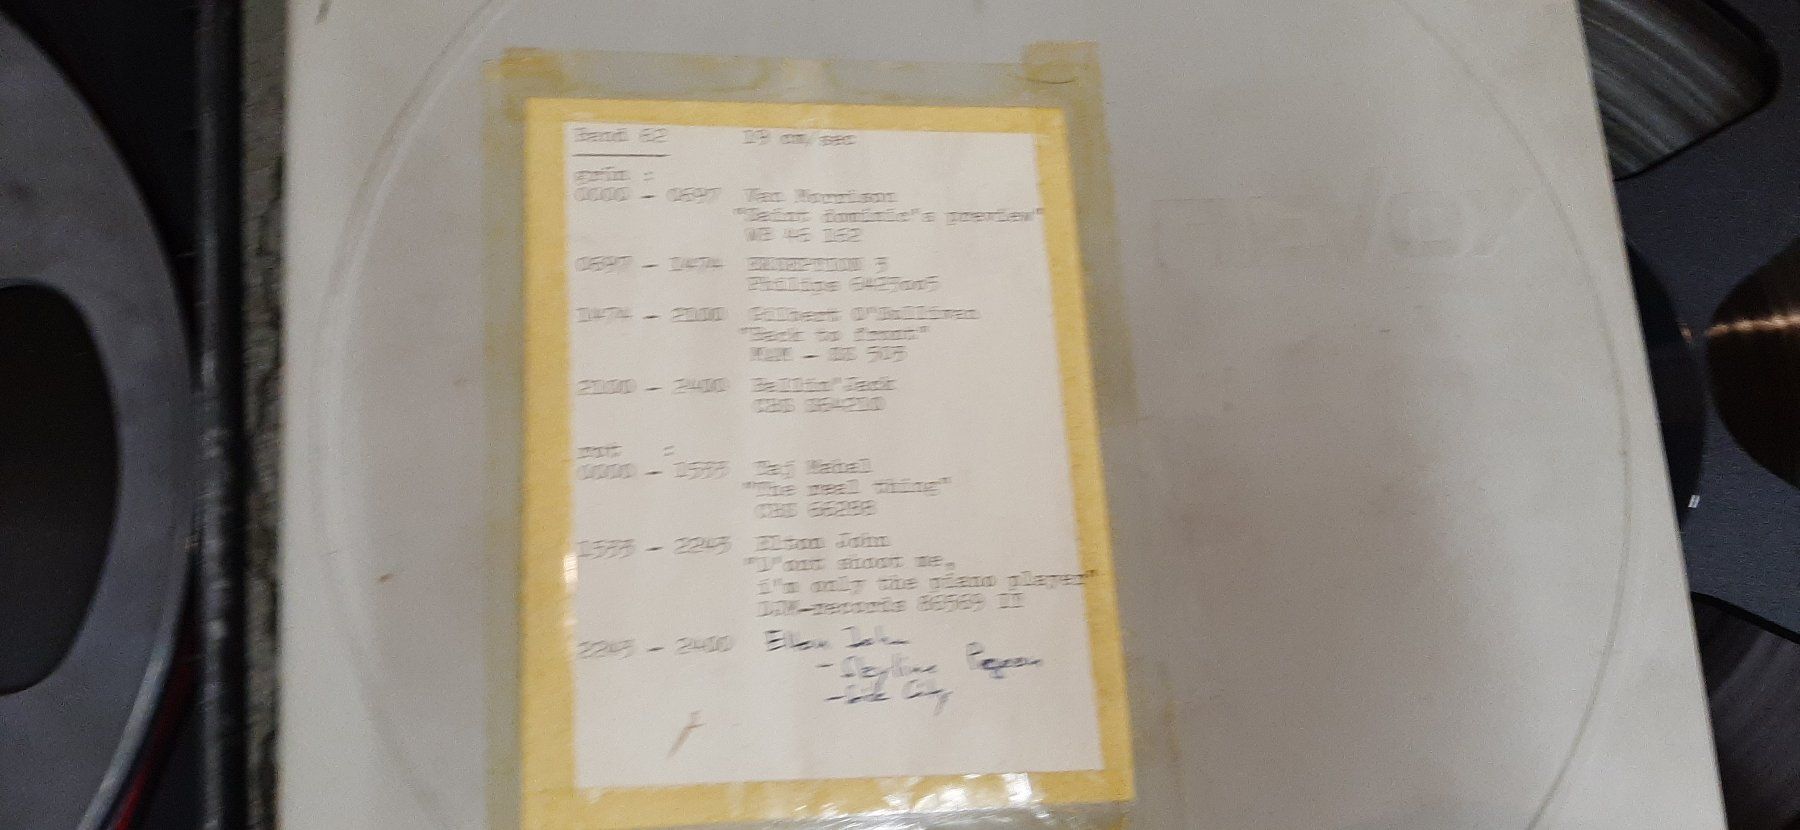 Band 62 19 cm/sec
grün :
0000 - 0697 Van Morrison
"Saint dominic's preview"
WB 46 162
0697 - 1474 EKSEPTION 5
Philips
1474 - 2100 Gilbert O'Sullivan
"Back to front"
MAM - SS 503
2100 - 2400 Ballin'Jack
CBS S64210
rot :
0000 - 1533 Taj Mahal
"The real thing"
CBS 66288
1533 - 2243 Elton John
"D'ont shoot me,
i'm only the piano player"
DJM-records
2243 - 2400 Elton John
- Skyline Pigeon